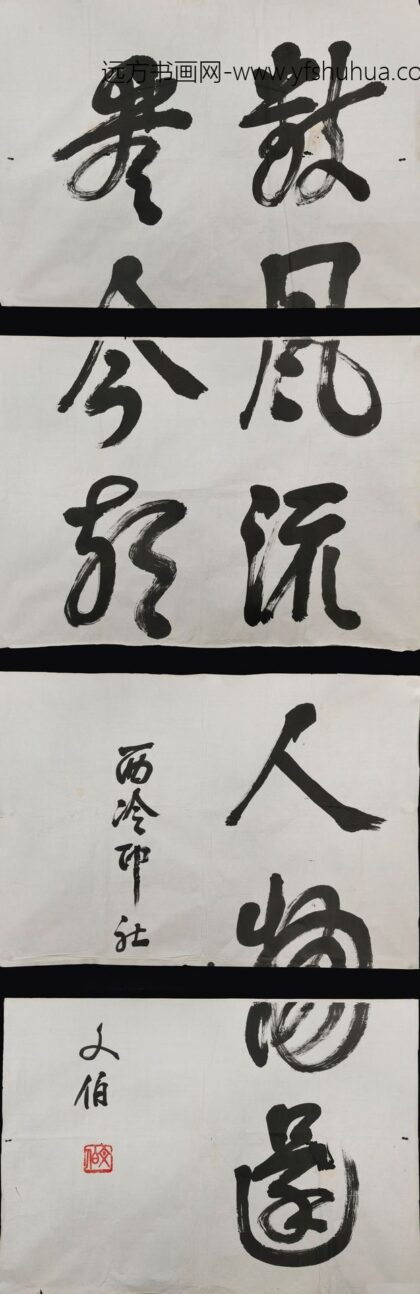 远方书画网-www.yfshuhua.co
數風流人物還
看今朝
西泠印社
文伯